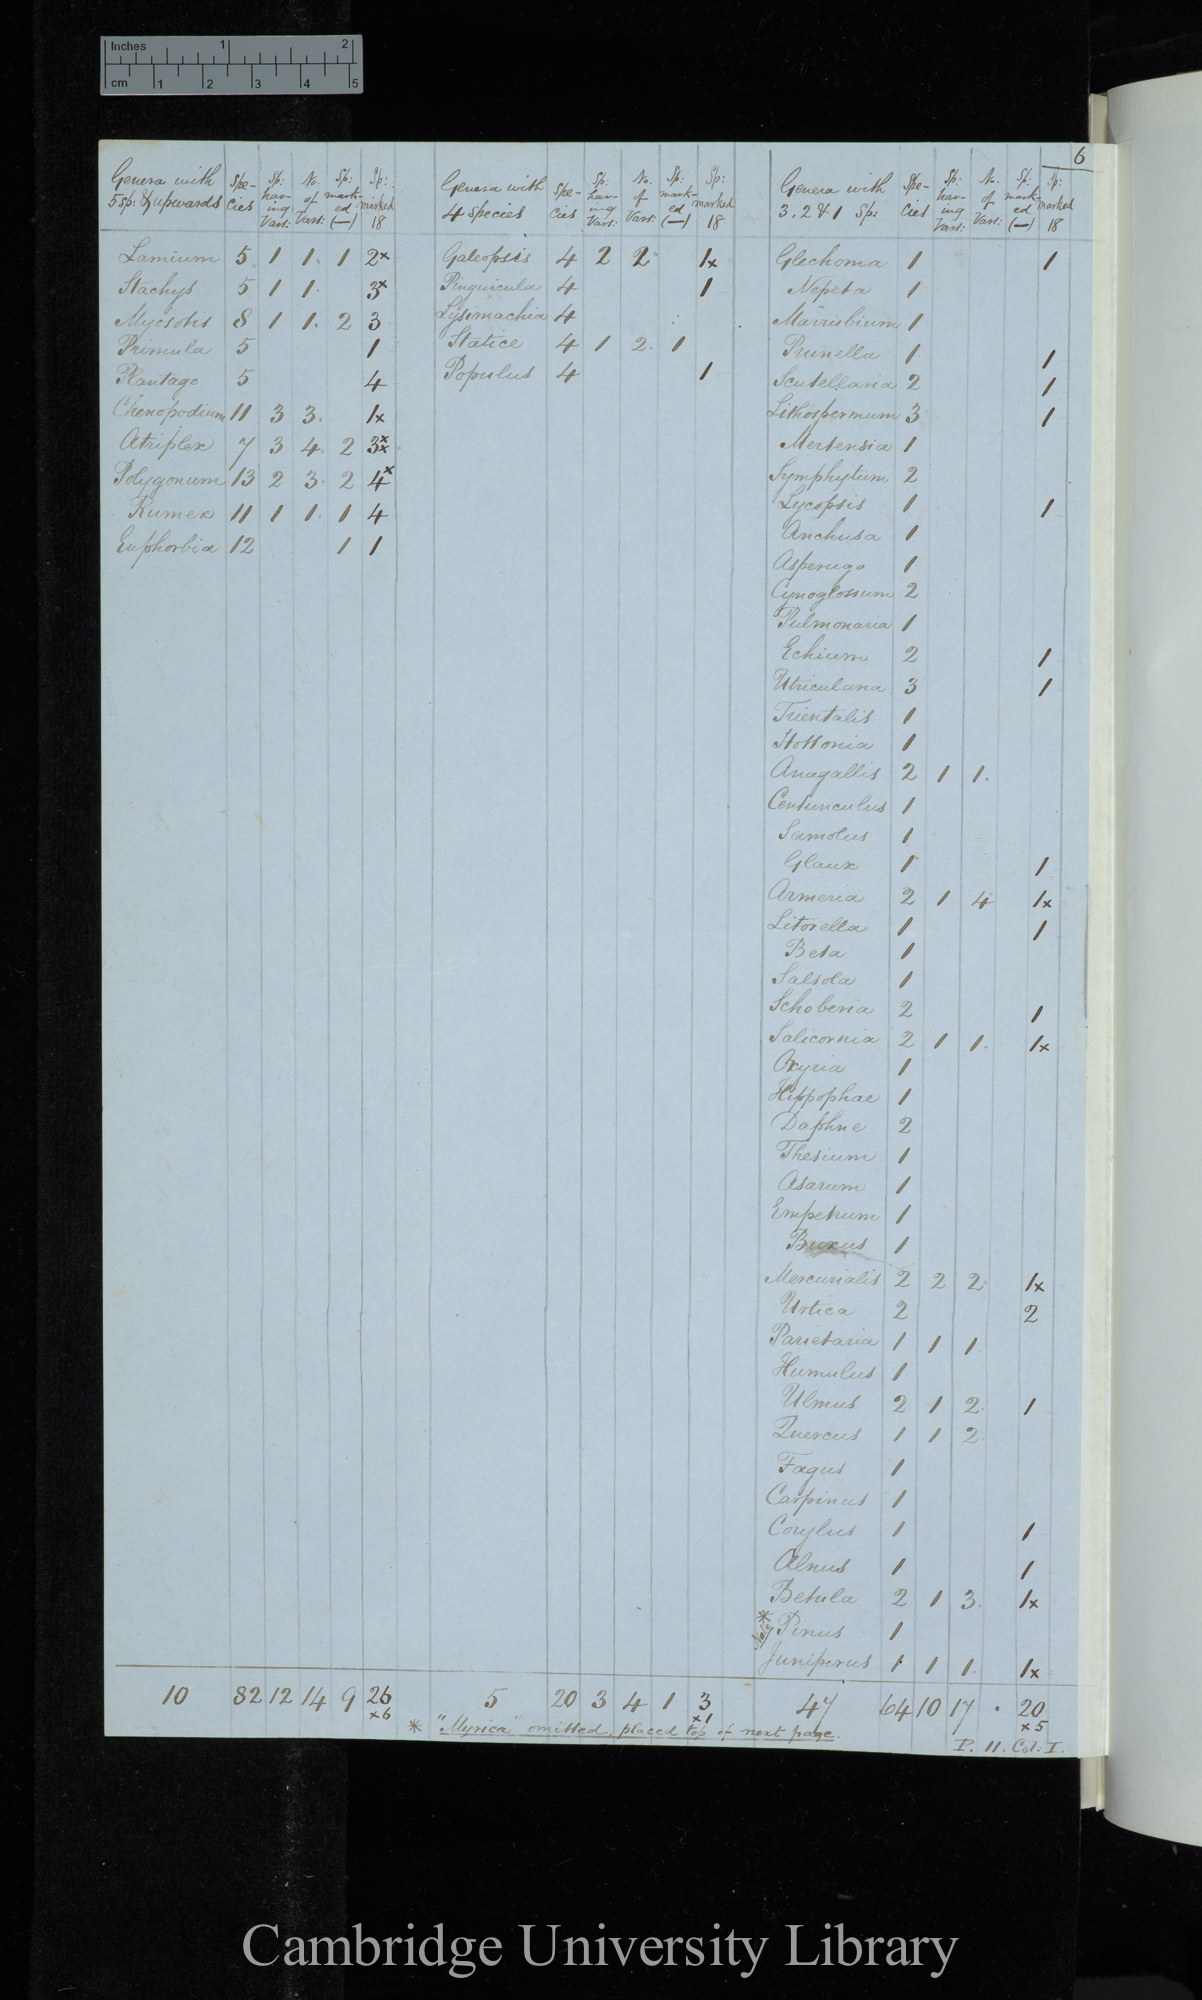 Inches 1 2
cm 1 2 3 4 5
6
Genera with 5 sp: & upwards | Spe-cies | Sp: hav-ing Vars: | No. of Vars: | Sp: mark-ed (—) | Sp: marked 18
Lamium 5 1 1. 1 2x
Stachys 5 1 1. 3x
Myosotis 8 1 1. 2 3
Primula 5 1
Plantago 5 4
Chenopodium 11 3 3. 1x
Atriplex 7 3 4. 2 3xx
Polygonum 13 2 3. 2 4x
Rumex 11 1 1. 1 4
Euphorbia 12 1 1
10 82 12 14 9 26 x6
Genera with 4 species | Spe-cies | Sp: hav-ing Vars: | No. of Vars: | Sp: mark-ed (—) | Sp: marked 18
Galeopsis 4 2 2. 1x
Pinguicula 4 1
Lysimachia 4
Statice 4 1 2. 1
Populus 4 1
5 20 3 4 1 3 x1
Genera with 3. 2 & 1 Sp: | Spe-cies | Sp: hav-ing Vars: | No. of Vars: | Sp: mark-ed (—) | Sp: marked 18
Glechoma 1 1
Nepeta 1
Marrubium 1
Prunella 1 1
Scutellaria 2 1
Lithospermum 3 1
Mertensia 1
Symphytum 2
Lycopsis 1 1
Anchusa 1
Asperugo 1
Cynoglossum 2
Pulmonaria 1
Echium 2 1
Utricularia 3 1
Trientalis 1
Hottonia 1
Anagallis 2 1 1.
Centunculus 1
Samolus 1
Glaux 1 1
Armeria 2 1 4 1x
Litorella 1 1
Beta 1
Salsola 1
Schoberia 2 1
Salicornia 2 1 1. 1x
Oxyria 1
Hippophae 1
Daphne 2
Thesium 1
Asarum 1
Empetrum 1
Buxus 1
Mercurialis 2 2 2. 1x
Urtica 2 2
Parietaria 1 1 1
Humulus 1
Ulmus 2 1 2. 1
Quercus 1 1 2
Fagus 1
Carpinus 1
Corylus 1 1
Alnus 1 1
Betula 2 1 3. 1x
* Pinus 1
Juniperus 1 1 1. 1x
47 64 10 17 . 20 x5
* "Myrica" omitted, placed top of next page.
P. 11. Col: I.
Cambridge University Library